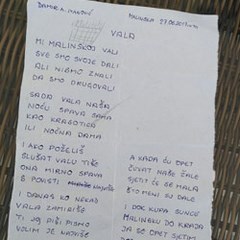 MALINSKA 27.08.2013.
VALA
MI MALINŠKOJ VALI
SVE SMO SVOJE DALI
ALI NISMO ZNALI
DA SMO DRUGOVALI
SADA VALA NAŠA
NOĆU SPAVA SAMA
KAO KRASOTICA
ILI NOĆNA DAMA
I AKO POŽELIŠ
SLUŠAT VALU TIŠE
ONA MIRNO SPAVA
I DANAS KO NEKAD
VALA ZAMIRIŠE
TI JOJ PIŠI PISMO
VOLIM JE NAJVIŠE
A KADA ĆU OPET
ČUVAT NAŠE ŽALE
SJETIT ĆU SE MALA
ŠTO MENI SU DALE
I DOK KUPA SUNCE
MALINSKU DO KRAJA
JA SE OPET SJETIM